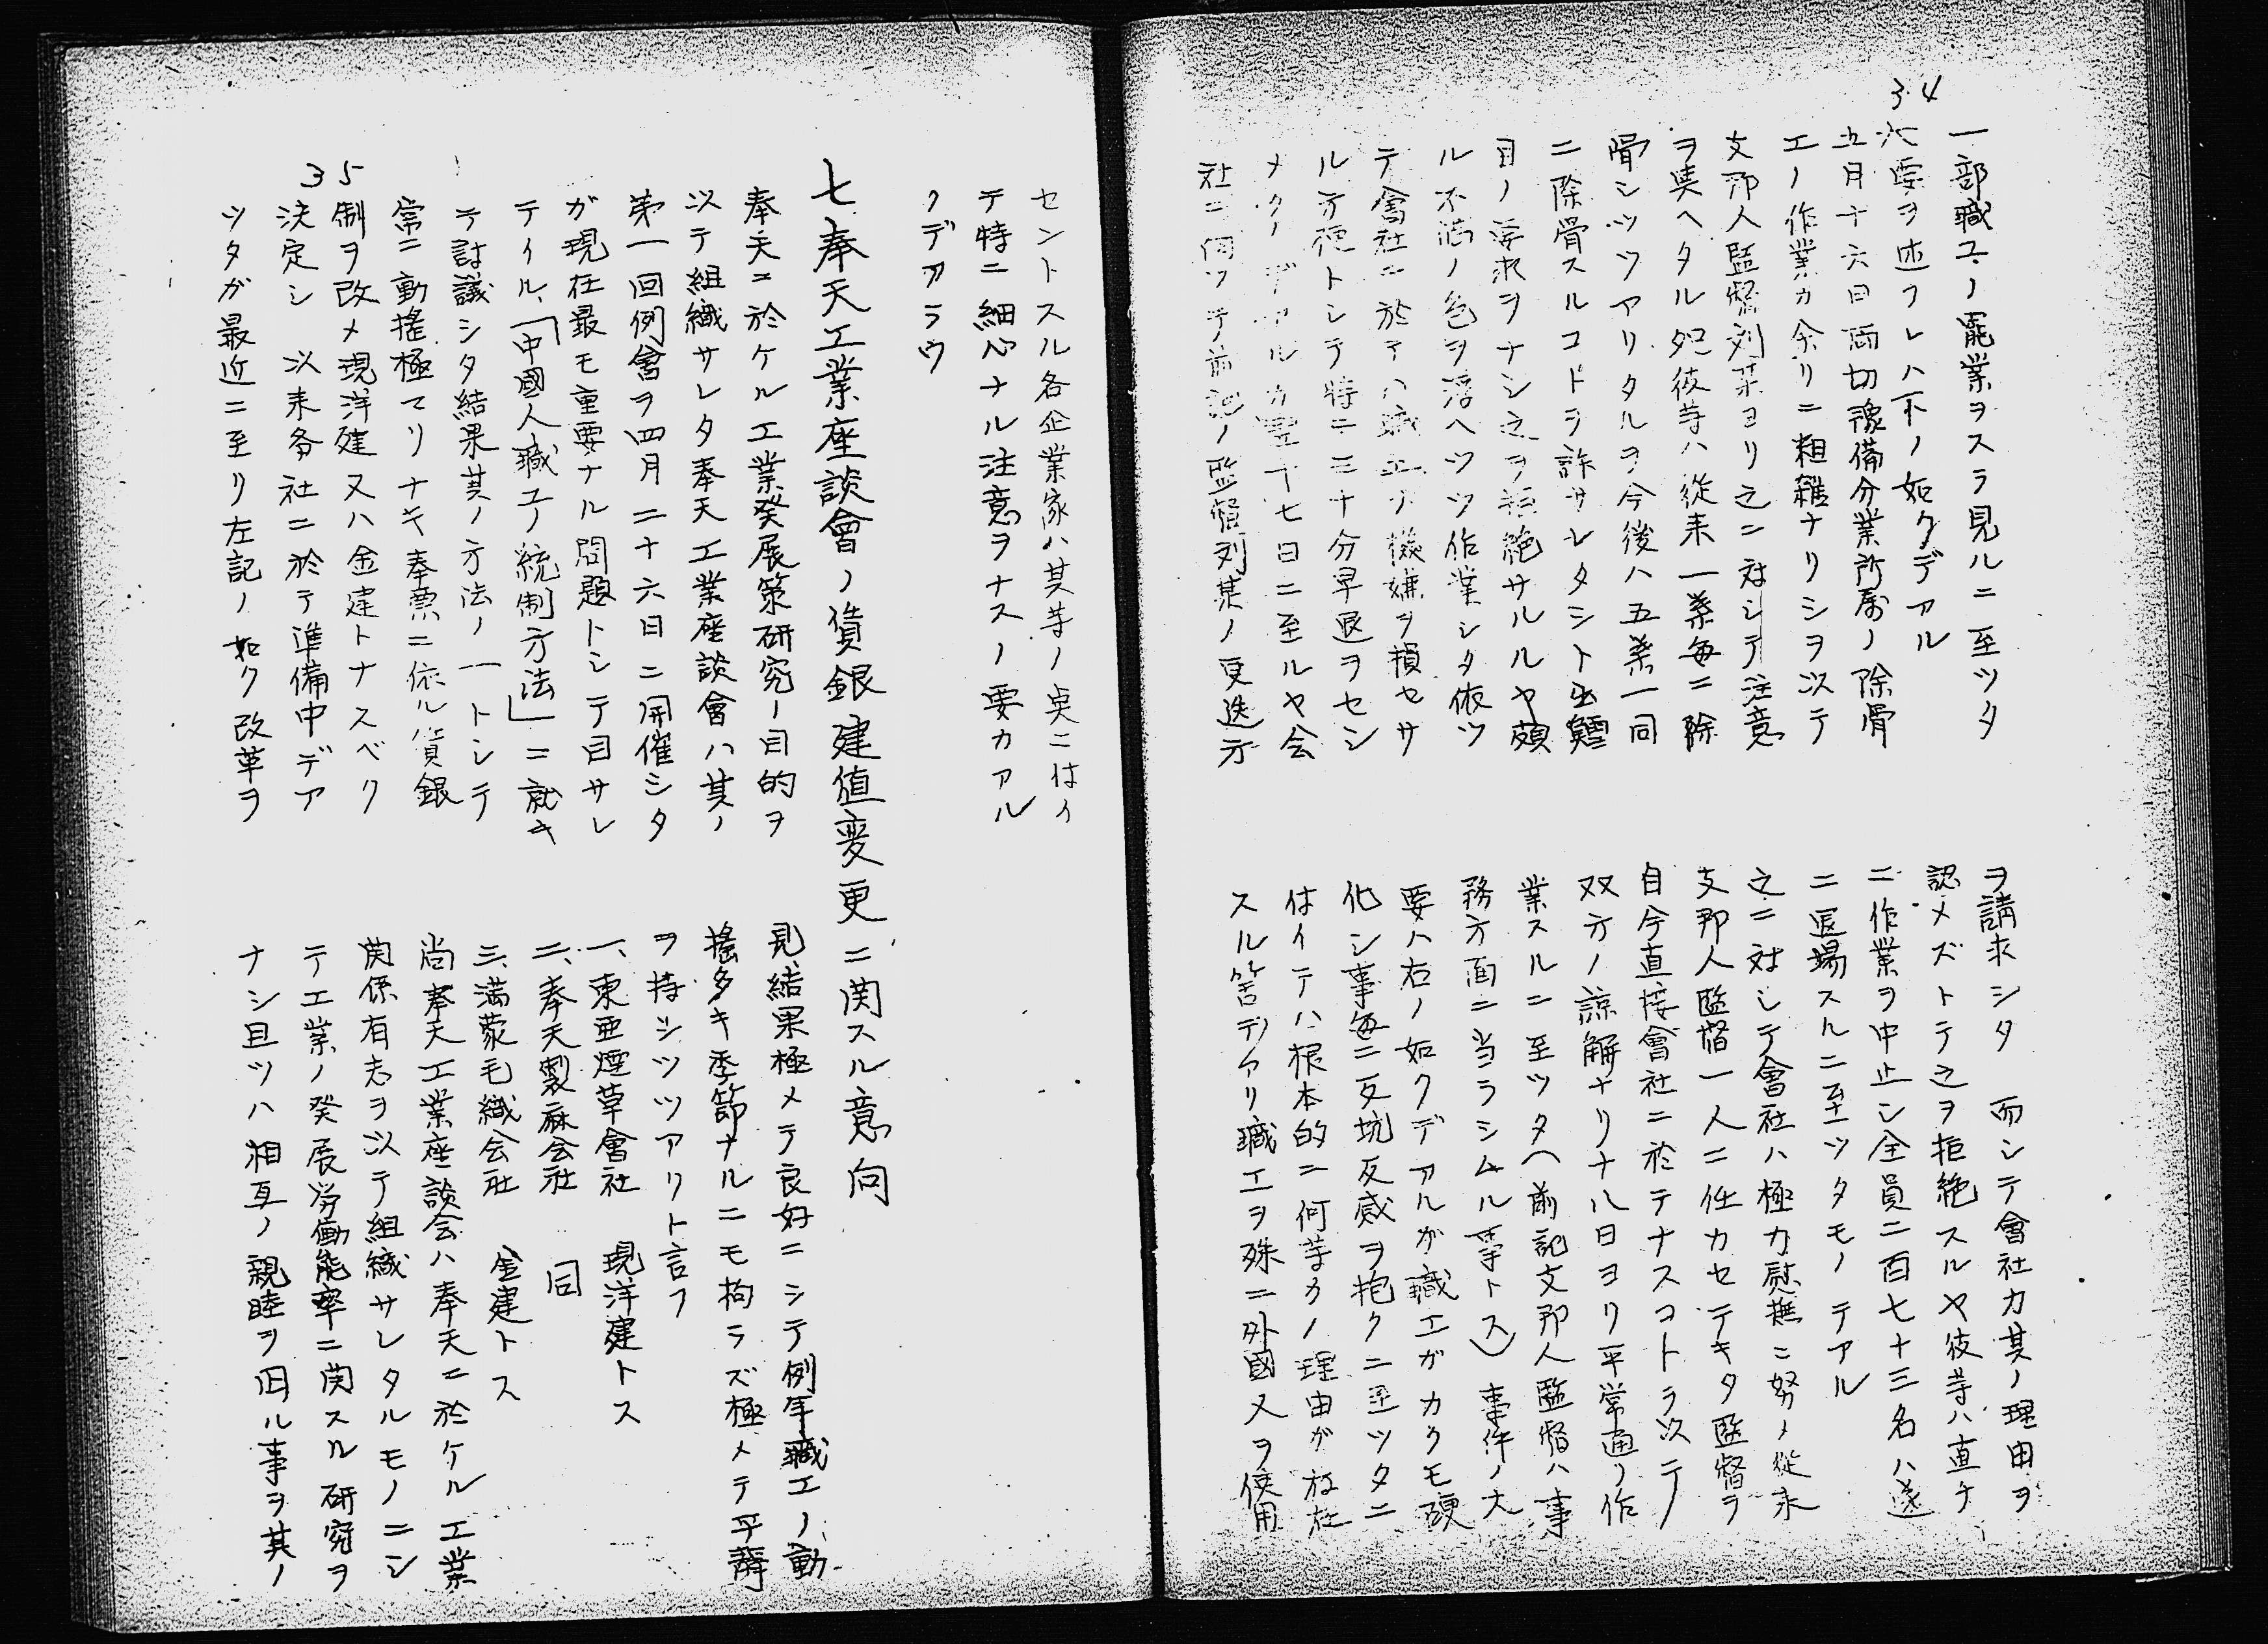 34
一部職工ノ罷業ヲスラ見ルニ至ツタ
大要ヲ述フレハ下ノ如クデアル
五月十六日両切豫備分業所属ノ除骨
工ノ作業カ余リニ粗雑ナリシヲ以テ
支那人監督刘某ヨリ之ニ対シテ注意
ヲ與ヘタル処彼等ハ従来一葉毎ニ除
骨シツツアリタルヲ今後ハ五葉一同
ニ除骨スルコトヲ許サレタシト出鱈
目ノ要求ヲナシ之ヲ拒絶サルルヤ頗
ル不満ノ色ヲ浮ヘツツ作業シタ依ツ
テ會社ニ於テハ職工ノ機嫌ヲ損セサ
ル方便トシテ特ニ二十分早退ヲセシ
メタノデアルカ翌十七日ニ至ルヤ会
社ニ向ツテ前記ノ監督刘某ノ更迭方
ヲ請求シタ 而シテ會社カ其ノ理由ヲ
認メズトテ之ヲ拒絶スルヤ彼等ハ直ケ
ニ作業ヲ中止シ全員二百七十三名ハ遂
ニ退場スルニ至ツタモノテアル
之ニ対シテ會社ハ極力慰撫ニ努ノ従来
支那人監督一人ニ任カセテキタ監督ヲ
自今直接會社ニ於テナスコトヲ以テ
双方ノ諒解ナリ十八日ヨリ平常通リ作
業スルニ至ツタ(前記支那人監督ハ事
務方面ニ当ラシムル等トス)事件ノ大
要ハ右ノ如クデアルガ職工ガカクモ硬
化シ事毎ニ反抗反感ヲ抱クニ至ツタニ
はイテハ根本的ニ何等カノ理由が存在
スル筈デアリ職工ヲ殊ニ外國人ヲ使用
セントスル各企業家ハ其等ノ点ニはイ
テ特ニ細心ナル注意ヲナスノ要カアル
ノデアラウ
七奉天工業座談會ノ賃銀建値変更ニ関スル意向
奉天ニ於ケル工業発展策研究ノ目的ヲ
以テ組織サレタ奉天工業座談會ハ其ノ
第一回例會ヲ四月二十六日ニ開催シタ
が現在最モ重要ナル問題トシテ目サレ
テイル、「中國人職工ノ統制方法」ニ就キ
テ討議シタ結果其ノ方法ノ一トシテ
常ニ動揺極マリナキ奉票ニ依ル賃銀
35
制ヲ改メ現洋建又ハ金建トナスベク
決定シ 以来各社ニ於テ準備中デア
ツタガ最近ニ至リ左記ノ如ク改革ヲ
見結果極メテ良好ニシテ例年職工ノ動
揺多キ季節ナルニモ拘ラズ極メテ平静
ヲ持シツツアリト言フ
一、東亜煙草會社 現洋建トス
二、奉天製麻会社 同
三、満蒙毛織会社 金建トス
尚奉天工業座談会ハ奉天ニ於ケル工業
関係有志ヲ以テ組織サレタルモノニシ
テ工業ノ発展労働能率ニ関スル研究ヲ
ナシ且ツハ相互ノ親睦ヲ図ル事ヲ其ノ